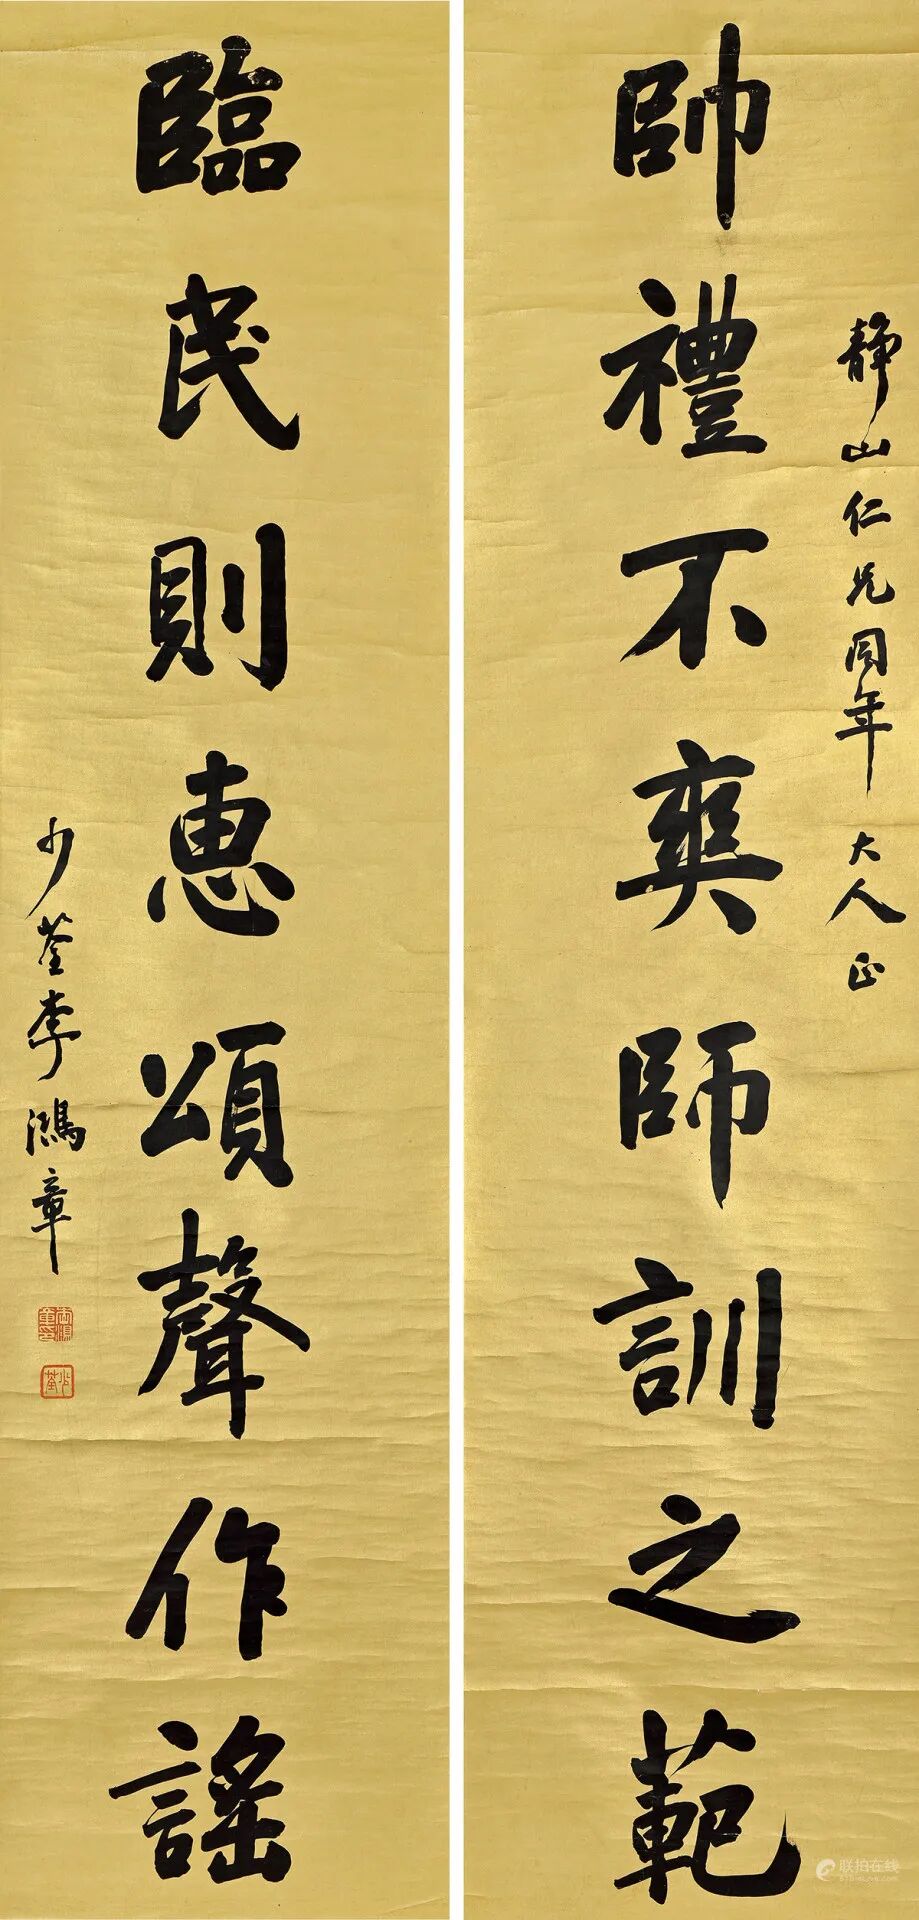 静山仁兄同年大人正
帥禮不爽師訓之範
臨民則惠頌聲作謠
少荃李鴻章
少荃
联拍在线